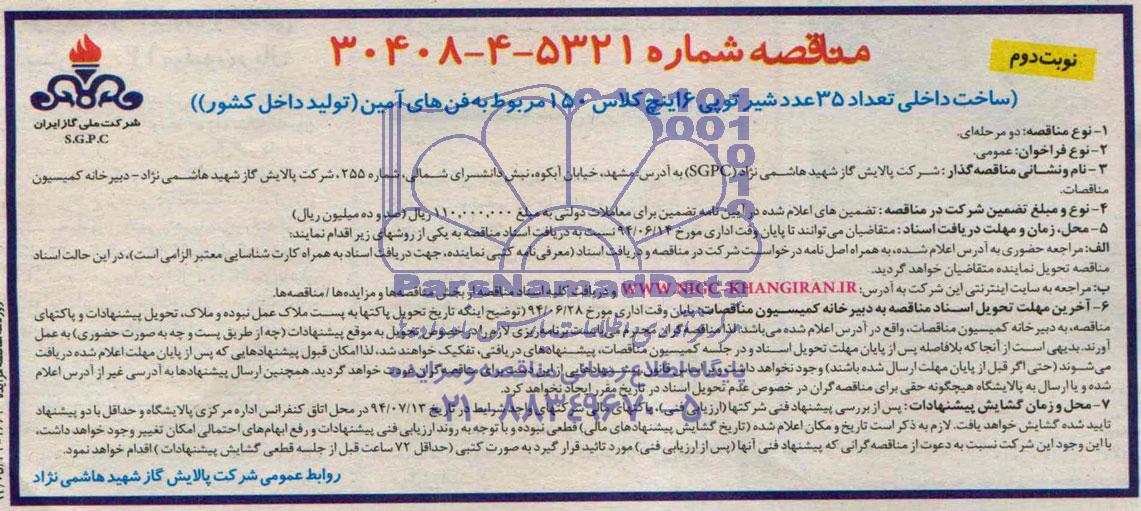 مناقصه شماره ۵۳۲۱-۴-۳۰۴۰۸
نوبت دوم
شرکت ملی گاز ایران
S.G.P.C
(ساخت داخلی تعداد ۳۵ عدد شیر توپی ۶ اینچ کلاس ۱۵۰ مربوط به فن های آمین (تولید داخل کشور))
۱- نوع مناقصه: دو مرحله‌ای.
۲- نوع فراخوان: عمومی.
۳ - نام ونشانی مناقصه گذار: شرکت پالایش گاز شهید هاشمی نژاد (SGPC) به آدرس: مشهد، خیابان آبکوه، نبش دانشسرای شمالی، شماره ۲۵۵، شرکت پالایش گاز شهید هاشمی نژاد - دبیرخانه کمیسیون
مناقصات.
۴- نوع و مبلغ تضمین شرکت در مناقصه: تضمین های اعلام شده در آیین نامه تضمین برای معاملات دولتی به مبلغ ۱۱۰,۰۰۰,۰۰۰ ریال (صد و ده میلیون ریال)
۵- محل، زمان و مهلت دریافت اسناد: متقاضیان می‌توانند تا پایان وقت اداری مورخ ۹۴/۰۶/۱۴ نسبت به دریافت اسناد مناقصه به یکی از روشهای زیر اقدام نمایند:
الف: مراجعه حضوری به آدرس اعلام شده، به همراه اصل نامه درخواست شرکت در مناقصه و دریافت اسناد (معرفی نامه کتبی نماینده، جهت دریافت اسناد به همراه کارت شناسایی معتبر الزامی است)، در این حالت اسناد
مناقصه تحویل نماینده متقاضیان خواهد گردید.
ب: مراجعه به سایت اینترنتی این شرکت به آدرس: WWW.NIGC-KHANGIRAN.IR و دریافت کلیه اسناد مناقصه از بخش مناقصه‌ها و مزایده‌ها / مناقصه‌ها.
۶- آخرین مهلت تحویل اسناد مناقصه به دبیرخانه کمیسیون مناقصات: پایان وقت اداری مورخ ۹۴/۰۶/۲۸ (توضیح اینگه تاریخ تحویل پاکتها به پست ملاک عمل نبوده و ملاک، تحویل پیشنهادات و پاکتهای
مناقصه، به دبیرخانه کمیسیون مناقصات، واقع در آدرس اعلام شده می‌باشد. لذا مناقصه گران محترم می‌بایست برنامه‌ریزی لازم را درخصوص تحویل به موقع پیشنهادات (چه از طریق پست و چه به صورت حضوری) به عمل
آورند. بدیهی است از آنجا که بلافاصله پس از پایان مهلت تحویل اسناد و در جلسه کمیسیون مناقصات، پیشنهادهای دریافتی، تفکیک خواهند شد، لذا امکان قبول پیشنهادهایی که پس از پایان مهلت اعلام شده دریافت
می‌شوند (حتی اگر قبل از پایان مهلت ارسال شده باشند) وجود نخواهد داشت و براساس قانون پیشنهادهایی از این دست برای مناقصه گران عودت خواهد گردید. همچنین ارسال پیشنهادها به آدرسی غیر از آدرس اعلام
شده و یا ارسال به پالایشگاه هیچگونه حقی برای مناقصه گران در خصوص عدم تحویل اسناد در تاریخ مقرر ایجاد نخواهد کرد.
۷- محل و زمان گشایش پیشنهادات: پس از بررسی پیشنهاد فنی شرکتها (ارزیابی فنی)، پاکتهای مالی شرکتهای واجد شرایط در تاریخ ۹۴/۰۷/۱۳ در محل اتاق کنفرانس اداره مرکزی پالایشگاه و حداقل با دو پیشنهاد
تایید شده گشایش خواهد یافت. لازم به ذکر است تاریخ و مکان اعلام شده (تاریخ گشایش پیشنهادهای مالی) قطعی نبوده و با توجه به روند ارزیابی فنی پیشنهادات و رفع ابهام‌های احتمالی امکان تغییر وجود خواهد داشت،
با این وجود این شرکت نسبت به دعوت از مناقصه گرانی که پیشنهاد فنی آنها (پس از ارزیابی فنی) مورد تائید قرار گیرد به صورت کتبی (حداقل ۷۲ ساعت قبل از جلسه قطعی گشایش پیشنهادات) اقدام خواهد نمود.
روابط عمومی شرکت پالایش گاز شهید هاشمی نژاد
ParsNamadData
پایگاه اطلاع رسانی مناقصه و مزایده
۰۲۱-۸۸۳۴۹۶۷۰-۵